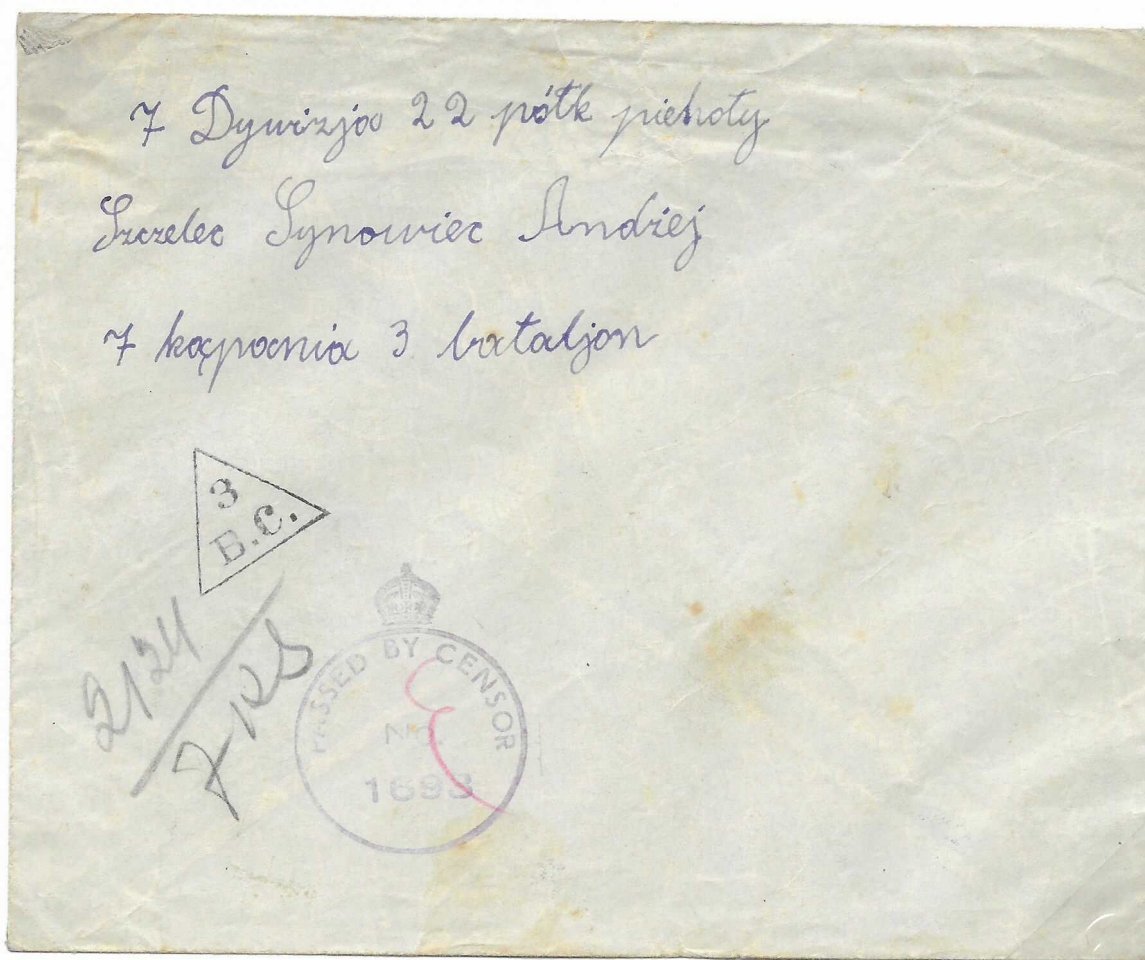 7 Dywizja 22 pótk piehoty
Szczelec Synowiec Andźej
7 kąpania 3 bataljon
3
B.C.
2124
PASSED BY CENSOR
No.
1693